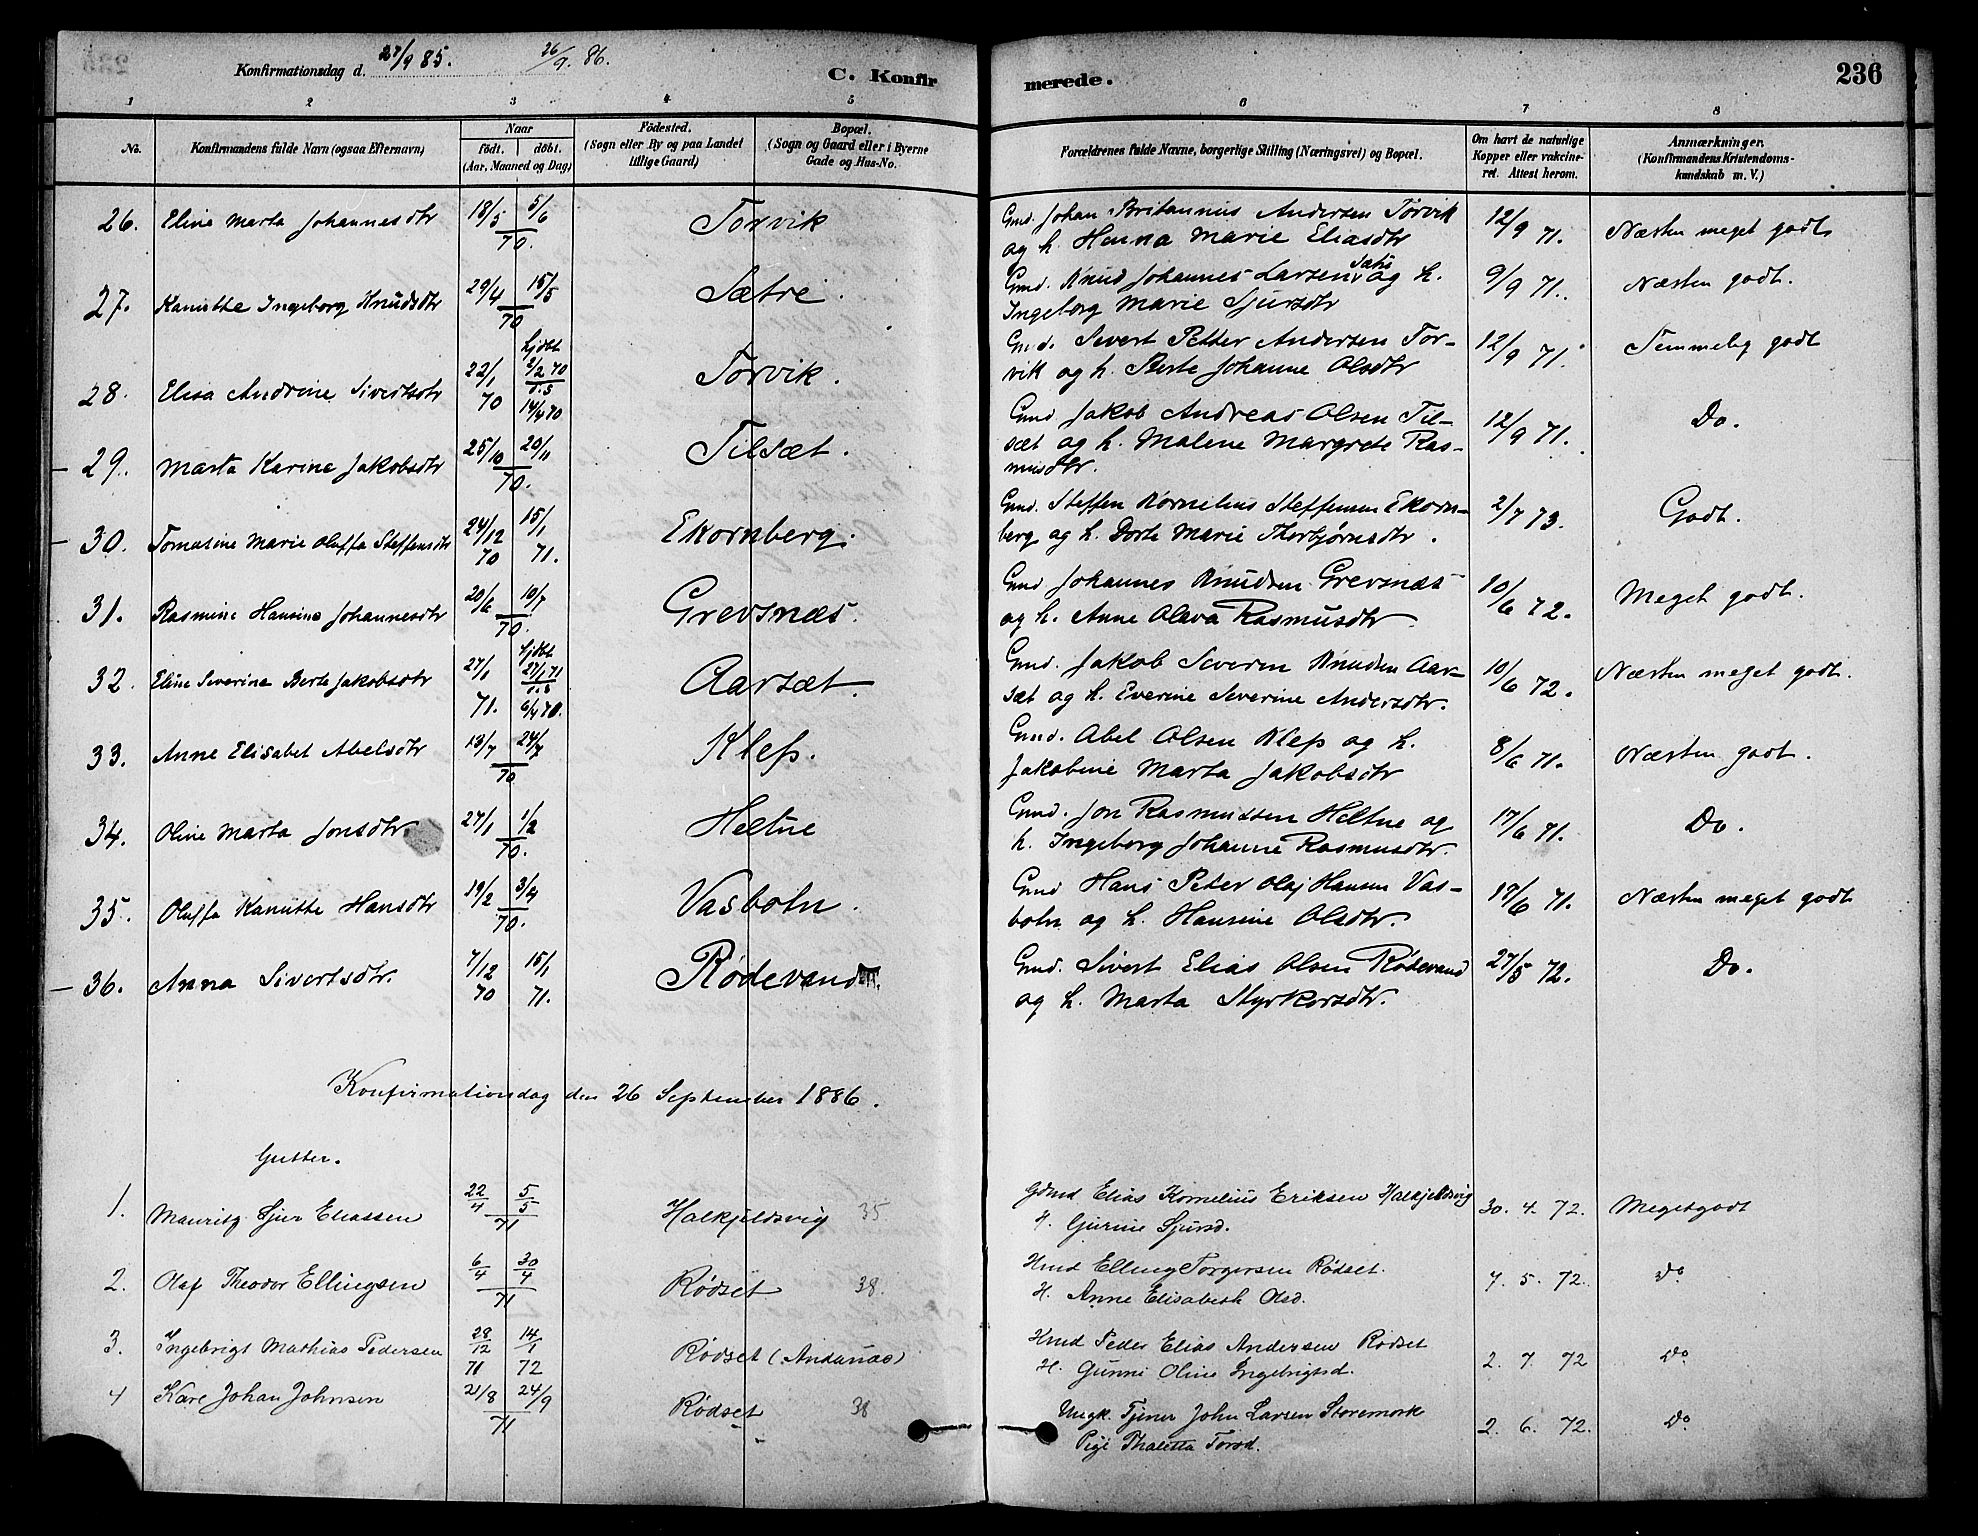 Konfirmationsdag d. 27/9 85. 26/9. 86.
C. Konfirmerede. 236
1 2 3 4 5 6 7 8
No. Konfirmandens fulde Navn (ogsaa Efternavn) Naar født. døbt. (Aar, Maaned og Dag) Fødested. (Sogn eller By og paa Landet tillige Gaard) Bopæl. (Sogn og Gaard eller i Byerne Gade og Hus-No. Forældrenes fulde Navne, borgerlige Stilling (Næringsvei) og Bopæl. Om havt de naturlige Kopper eller vakcineret. Attest herom. Anmærkninger. (Konfirmandens Kristendomskundskab m. V.)
26. Eline Marta Johannesdtr 18/5 5/6 70. Torvik Gmd. Johan Britannus Andersen Torvik og h. Hanna Marie Eliasdtr 12/9 71. Næsten meget godt
27. Kanutte Ingeborg Knudsdtr 29/4 15/5 70 Sætre. Gmd. Knud Johannes Larsen Sætre og h. Ingeborg Marie Sjursdtr 9/9 71. Næsten godt.
28. Elisa Andrine Sivertsdtr 22/1 70 hjdbt 2/2 70 14/4 70 Torvik. Gmd. Sivert Petter Andersen Torvik og h. Berte Johanne Olsdtr 12/9 71. Temmelig godt
29. Marta Karine Jakobsdtr 25/10 20/11 70. Tilsæt. Gmd Jakob Andreas Olsen Tilsæt og h. Malene Margrete Rasmusdtr. 12/9 71. Do.
30. Tomasine Marie Oluffa Steffensdtr 24/12 70 15/1 71. Ekornberg. Gmd. Steffen Kornelius Steffensen Ekornberg og h. Dorte Marie Thorbjørnsdtr. 2/7 73. Godt.
31. Rasmine Hansine Johannesdtr 20/6 10/7 70. Grevsnæs. Gmd Johannes Knudsen Grevsnæs og h. Anne Olava Rasmusdtr. 10/6 72. Meget godt.
32. Eline Severine Berte Jakobsdtr 27/1 71. hjdbt 27/1 71 6/4 70. Aarsæt. Gmd. Jakob Severin Knudsen Aarsæt og h. Everine Severine Andersdtr. 10/6 72. Næsten meget godt.
33. Anne Elisabet Abelsdtr 13/7 24/7 70 Klep. Gmd. Abel Olsen Klep og h. Jakobine Marta Jakobsdtr 8/6 71. Næsten godt.
34. Oline Marta Jonsdtr. 27/1 1/2 70. Heltne Gmd. Jon Rasmussen Heltne og h. Ingeborg Johanne Rasmusdtr. 17/6 71. Do.
35. Oluffa Kanutte Hansdtr 19/2 3/4 70. Vasbotn. Gmd Hans Peter Olaj Hansen Vasbotn og h. Hansine Olsdtr. 17/6 71. Næsten meget godt
36. Anna Sivertsdtr. 7/12 70 15/1 71. Rødevand Gmd. Sivert Elias Olsen Rødevand og h. Marta Styrkorsdtr. 27/5 72. Do.
Konfirmationsdag den 26 September 1886.
Gutter.
1. Mauritz Sjur Eliassen 22/4 5/5 71 Halkjeldsvig 35 Gdmd Elias Kornelius Eriksen Halkjeldsvig H. Gurine Sjursd. 30. 4. 72. Megetgodt
2. Olaf Theodor Ellingsen 6/4 30/4 71 Rødset 38. Hmd Elling Torgersen Rødset. H. Anne Elisabeth Olsd. 7. 5. 72. Do
3. Ingebrigt Mathias Pedersen 28/12 71 14/1 72 Rødset (Andanæs) Hmd Peder Elias Andersen Rødset H. Gunni Oline Ingebrigtsd. 2. 7. 72 Do
4 Karl Johan Johnsen 21/8 24/9 71 Rødset 38 Ungk. Tjener John Larsen Storemork Pige Thaletta Torsd. 2. 6. 72. Do